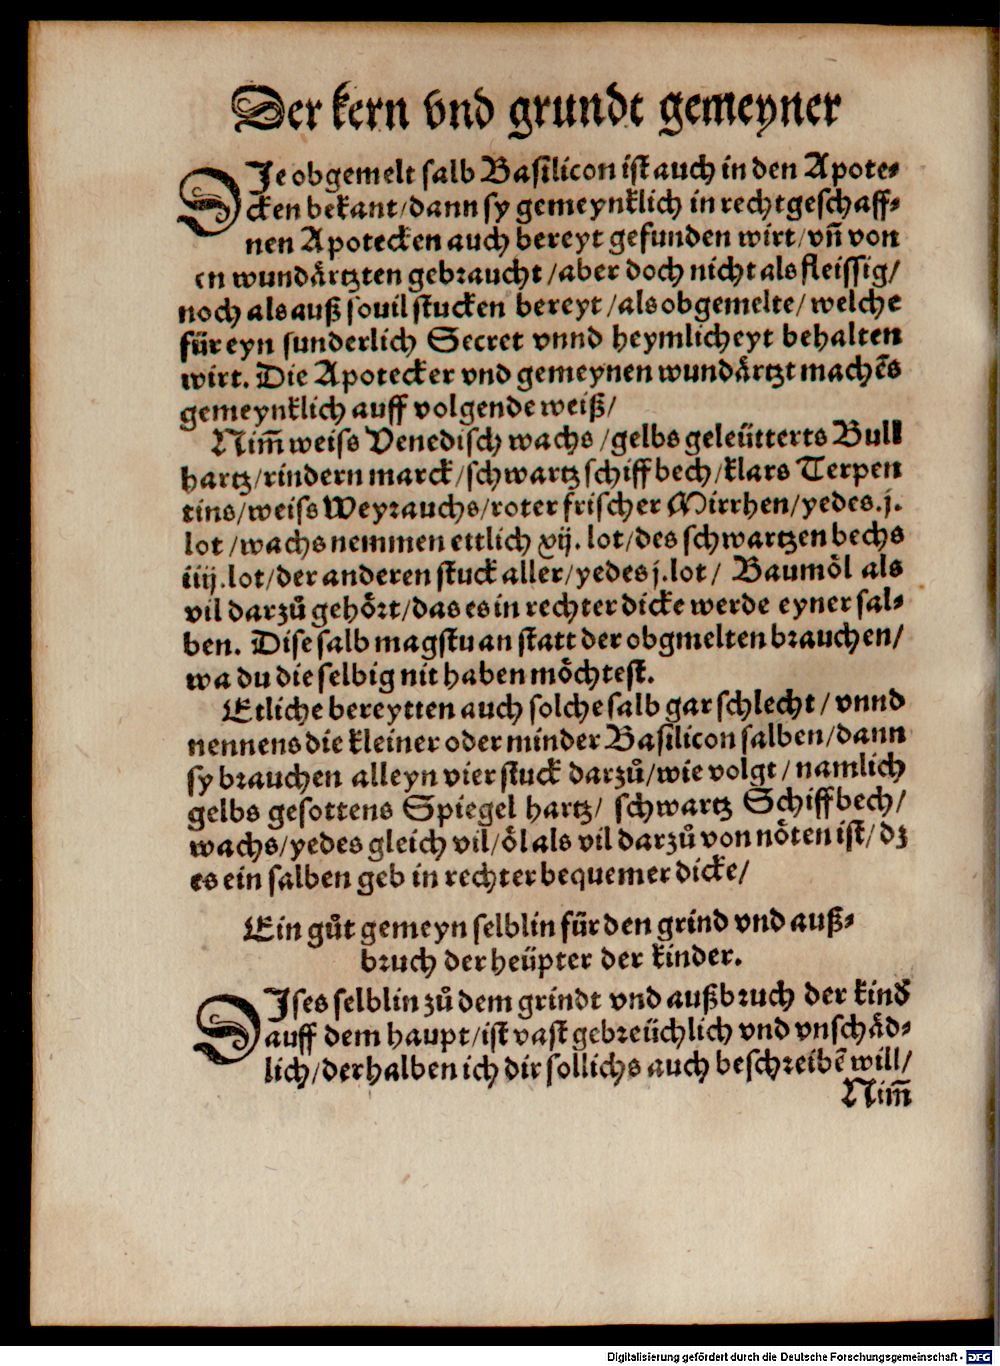 Der kern vnd grundt gemeyner
DIe obgemelt salb Basilicon ist auch in den Apote⸗
cken bekant/dann sy gemeynklich in rechtgeschaff⸗
nen Apotecken auch bereyt gefunden wirt/vñ von
en wundårtzten gebraucht/aber doch nicht als fleissig/
noch als auß souil stucken bereyt/als obgemelte/welche
für eyn sunderlich Secret vnnd heymlicheyt behalten
wirt. Die Apotecker vnd gemeynen wundårtzt machẽs
gemeynklich auff volgende weiß/
Nim̃ weiss Venedisch wachs/gelbs geleütterts Bull
hartz/rindern marck/schwartz schiffbech/klars Terpen
tins/weiss Weyrauchs/roter frischer Mirrhen/yedes.j.
lot/wachs nemmen ettlich xij. lot/des schwartzen bechs
iiij.lot/der anderen stuck aller/yedes j.lot/ Baumöl als
vil darzů gehört/das es in rechter dicke werde eyner sal⸗
ben. Dise salb magstu an statt der obgmelten brauchen/
wa du die selbig nit haben möchtest.
Etliche bereytten auch solche salb gar schlecht/vnnd
nennens die kleiner oder minder Basilicon salben/dann
sy brauchen alleyn vier stuck darzů/wie volgt/namlich
gelbs gesottens Spiegel hartz/ schwartz Schiffbech/
wachs/yedes gleich vil/öl als vil darzů von nöten ist/dz
es ein salben geb in rechter bequemer dicke/
Ein gůt gemeyn selblin für den grind vnd auß⸗
bruch der heüpter der kinder.
DIses selblin zů dem grindt vnd außbruch der kind
auff dem haupt/ist vast gebreüchlich vnd vnschåd⸗
lich/derhalben ich dir sollichs auch beschreibẽ will/
Nim̃
Digitalisierung gefördert durch die Deutsche Forschungsgemeinschaft - DFG